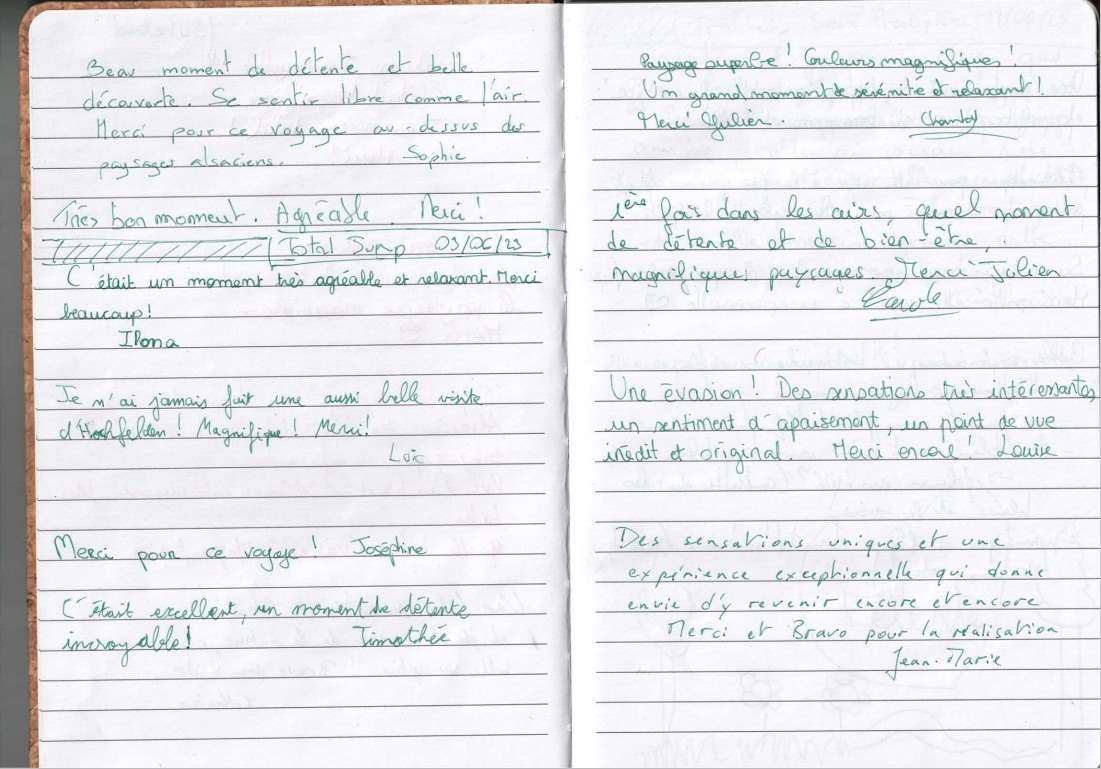 Beau moment de détente et belle
découverte. Se sentir libre comme l'air.
Merci pour ce voyage au-dessus des
paysages alsaciens. Sophie
Très bon moment. Agréable. Merci !
Total Jump 03/06/23
C'était un moment très agréable et relaxant. Merci
beaucoup!
Ilona
Je n'ai jamais fait une aussi belle visite
d'Hochfelden ! Magnifique ! Merci!
Loïc
Merci pour ce voyage ! Joséphine
C'était excellent, un moment de détente
incroyable! Timothée
Paysage superbe ! Couleurs magnifiques !
Un grand moment de sérénité et relaxant !
Merci Julien. Chantal
1ère fois dans les airs, quel moment
de détente et de bien-être,
magnifiques paysages Merci Julien
Carole
Une évasion ! Des sensations très intéressantes,
un sentiment d'apaisement, un point de vue
inédit et original. Merci encore ! Louise
Des sensations uniques et une
expérience exceptionnelle qui donne
envie d'y revenir encore et encore
Merci et Bravo pour la réalisation
Jean-Marie